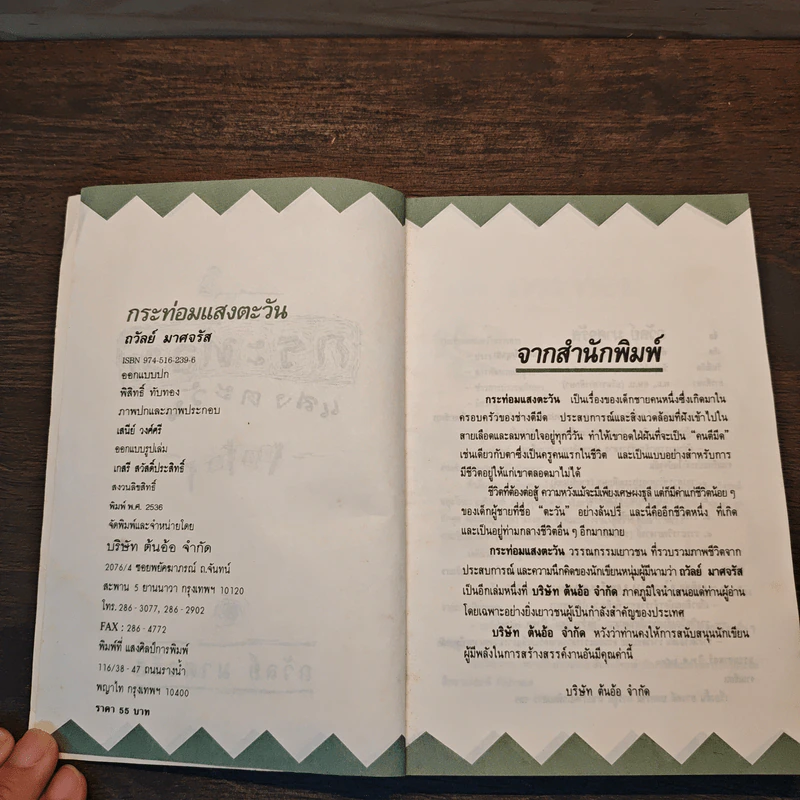 กระท่อมแสงตะวัน
ถวัลย์ มาศจรัส
ISBN 974-516-239-6
ออกแบบปก
พิสิทธิ์ ทับทอง
ภาพปกและภาพประกอบ
เสนีย์ วงศ์ศรี
ออกแบบรูปเล่ม
เกสรี สวัสดิ์ประสิทธิ์
สงวนลิขสิทธิ์
พิมพ์ พ.ศ. 2536
จัดพิมพ์และจำหน่ายโดย
บริษัท ต้นอ้อ จำกัด
2076/4 ซอยพยัคฆาภรณ์ ถ.จันทน์
สะพาน 5 ยานนาวา กรุงเทพฯ 10120
โทร. 286-3077, 286-2902
FAX : 286-4772
พิมพ์ที่ แสงศิลป์การพิมพ์
116/38-47 ถนนรางน้ำ
พญาไท กรุงเทพฯ 10400
ราคา 55 บาท
จากสำนักพิมพ์
กระท่อมแสงตะวัน เป็นเรื่องของเด็กชายคนหนึ่งซึ่งเกิดมาใน
ครอบครัวของช่างตีมีด ประสบการณ์และสิ่งแวดล้อมที่ฝังเข้าไปใน
สายเลือดและลมหายใจอยู่ทุกวี่วัน ทำให้เขาอดใฝ่ฝันที่จะเป็น "คนตีมีด"
เช่นเดียวกับตาซึ่งเป็นครูคนแรกในชีวิต และเป็นแบบอย่างสำหรับการ
มีชีวิตอยู่ให้แก่เขาตลอดมาไม่ได้
ชีวิตที่ต้องต่อสู้ ความหวังแม้จะมีเพียงเศษผงธุลี แต่ก็มีค่าแก่ชีวิตน้อย ๆ
ของเด็กผู้ชายที่ชื่อ "ตะวัน" อย่างล้นปรี่ และนี่คืออีกชีวิตหนึ่ง ที่เกิด
และเป็นอยู่ท่ามกลางชีวิตอื่น ๆ อีกมากมาย
กระท่อมแสงตะวัน วรรณกรรมเยาวชน ที่รวบรวมภาพชีวิตจาก
ประสบการณ์ และความนึกคิดของนักเขียนหนุ่มผู้มีนามว่า ถวัลย์ มาศจรัส
เป็นอีกเล่มหนึ่งที่ บริษัท ต้นอ้อ จำกัด ภาคภูมิใจนำเสนอแด่ท่านผู้อ่าน
โดยเฉพาะอย่างยิ่งเยาวชนผู้เป็นกำลังสำคัญของประเทศ
บริษัท ต้นอ้อ จำกัด หวังว่าท่านคงให้การสนับสนุนนักเขียน
ผู้มีพลังในการสร้างสรรค์งานอันมีคุณค่านี้
บริษัท ต้นอ้อ จำกัด